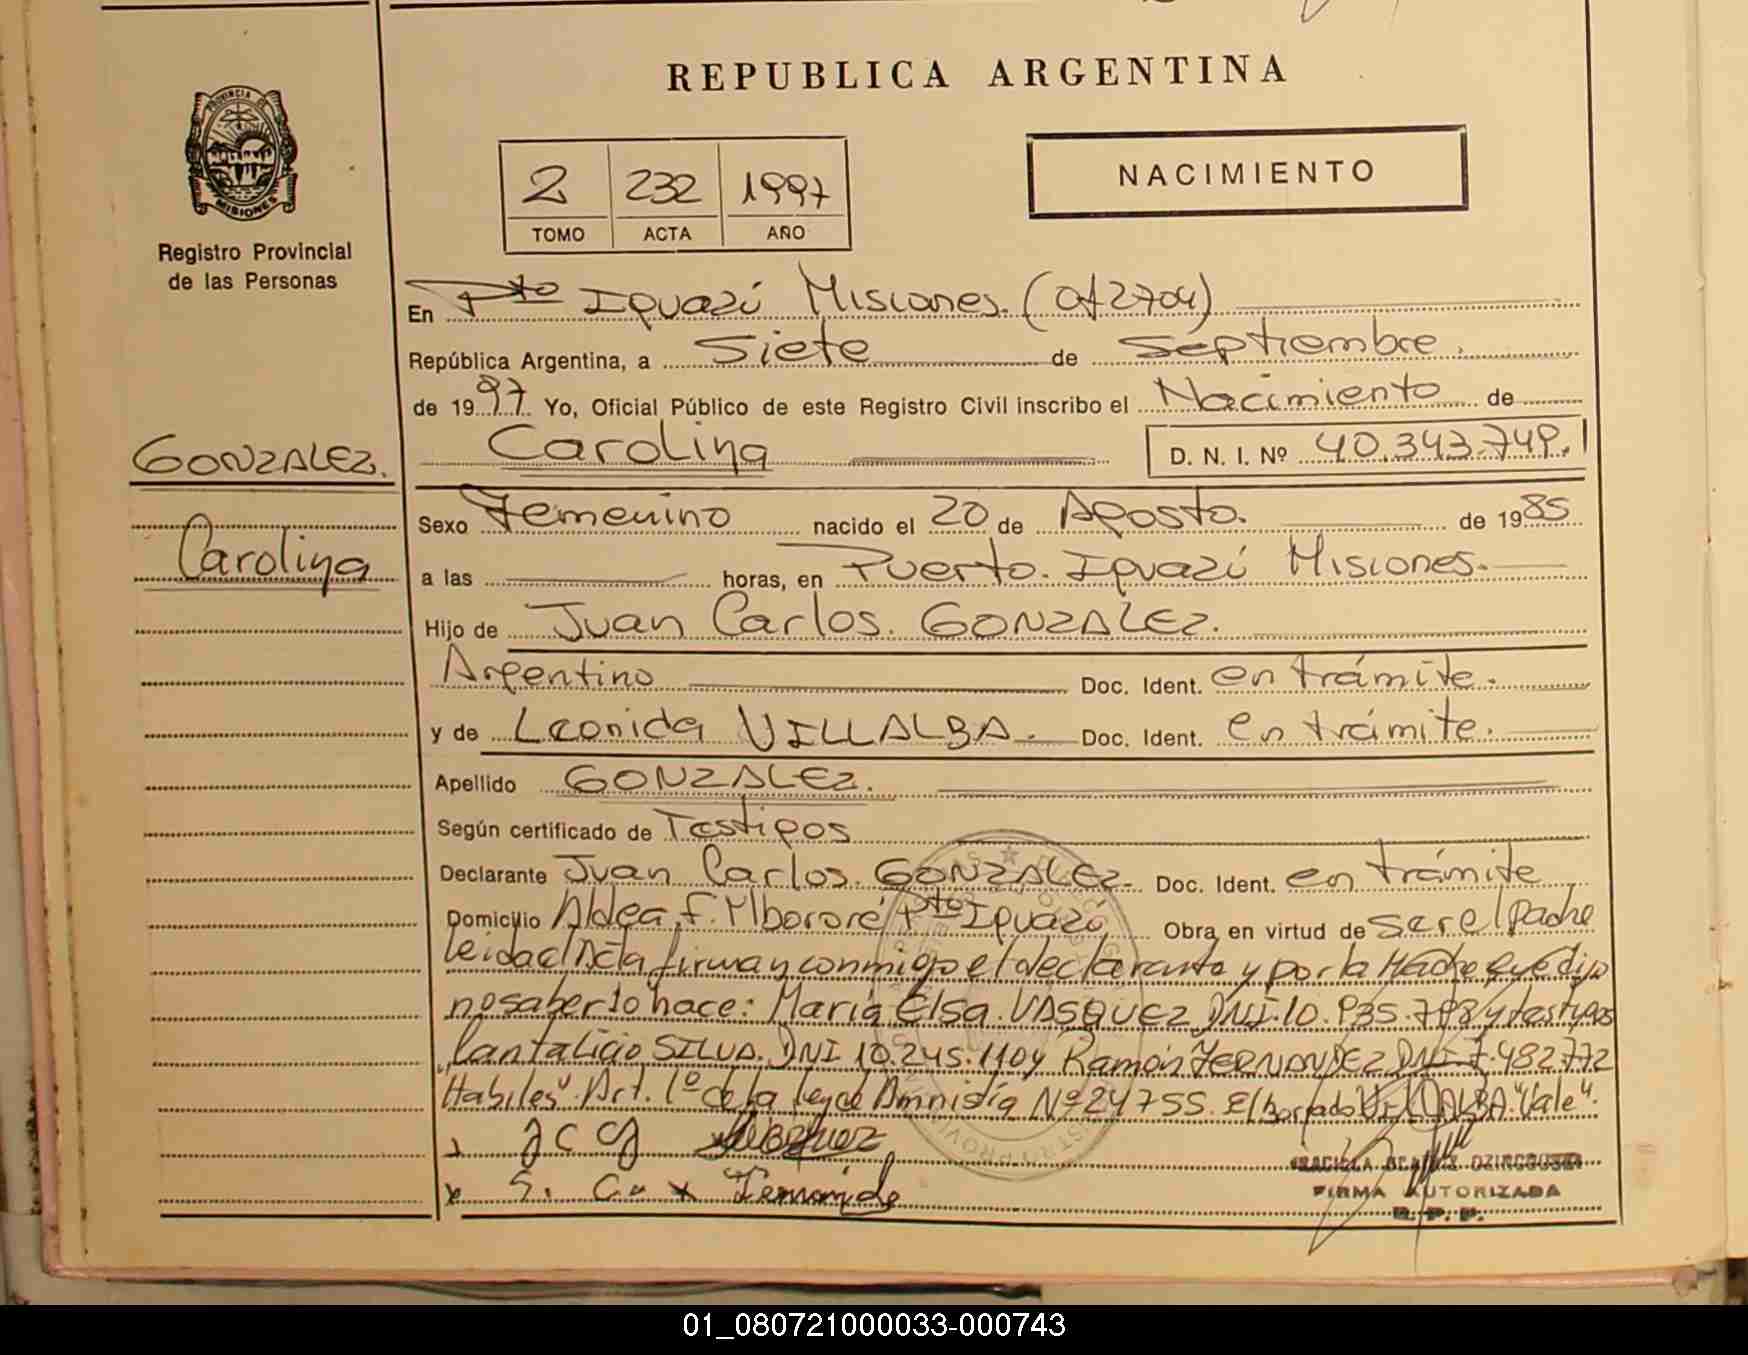 REPUBLICA ARGENTINA
PROVINCIA DE
MISIONES
Registro Provincial
de las Personas
2 232 1997
TOMO ACTA AÑO
NACIMIENTO
En Pto Iguazú Misiones. (of 2704)
República Argentina, a Siete de Septiembre.
de 1997 Yo, Oficial Público de este Registro Civil inscribo el Nacimiento de
Carolina D. N. I. Nº 40.343.749.
GONZALEZ.
Carolina
Sexo Femenino nacido el 20 de Agosto. de 1985
a las horas, en Puerto. Iguazú Misiones.
Hijo de Juan Carlos. GONZALEZ.
Argentino Doc. Ident. en trámite.
y de Leonida VILLALBA. Doc. Ident. en trámite.
Apellido GONZALEZ.
Según certificado de Testigos
Declarante Juan Carlos. GONZALEZ. Doc. Ident. en trámite
Domicilio Aldea f. Mbororé Pto Iguazú Obra en virtud de ser el padre
leida el Acta firman conmigo el declarante y por la Madre que dijo
no saber lo hace: María Elsa. VASQUEZ DNI. 10.935.798 y testigos
Pantalicio SILVA. DNI 10.245.110 y Ramón FERNANDEZ DNI 7.482772
"Habiles" Art. 1º de la ley de Amnistía Nº 24755. El borrado VILLALBA "Vale".
J C G
S. C. x Fernande
FIRMA AUTORIZADA
R. P. P.
01_080721000033-000743